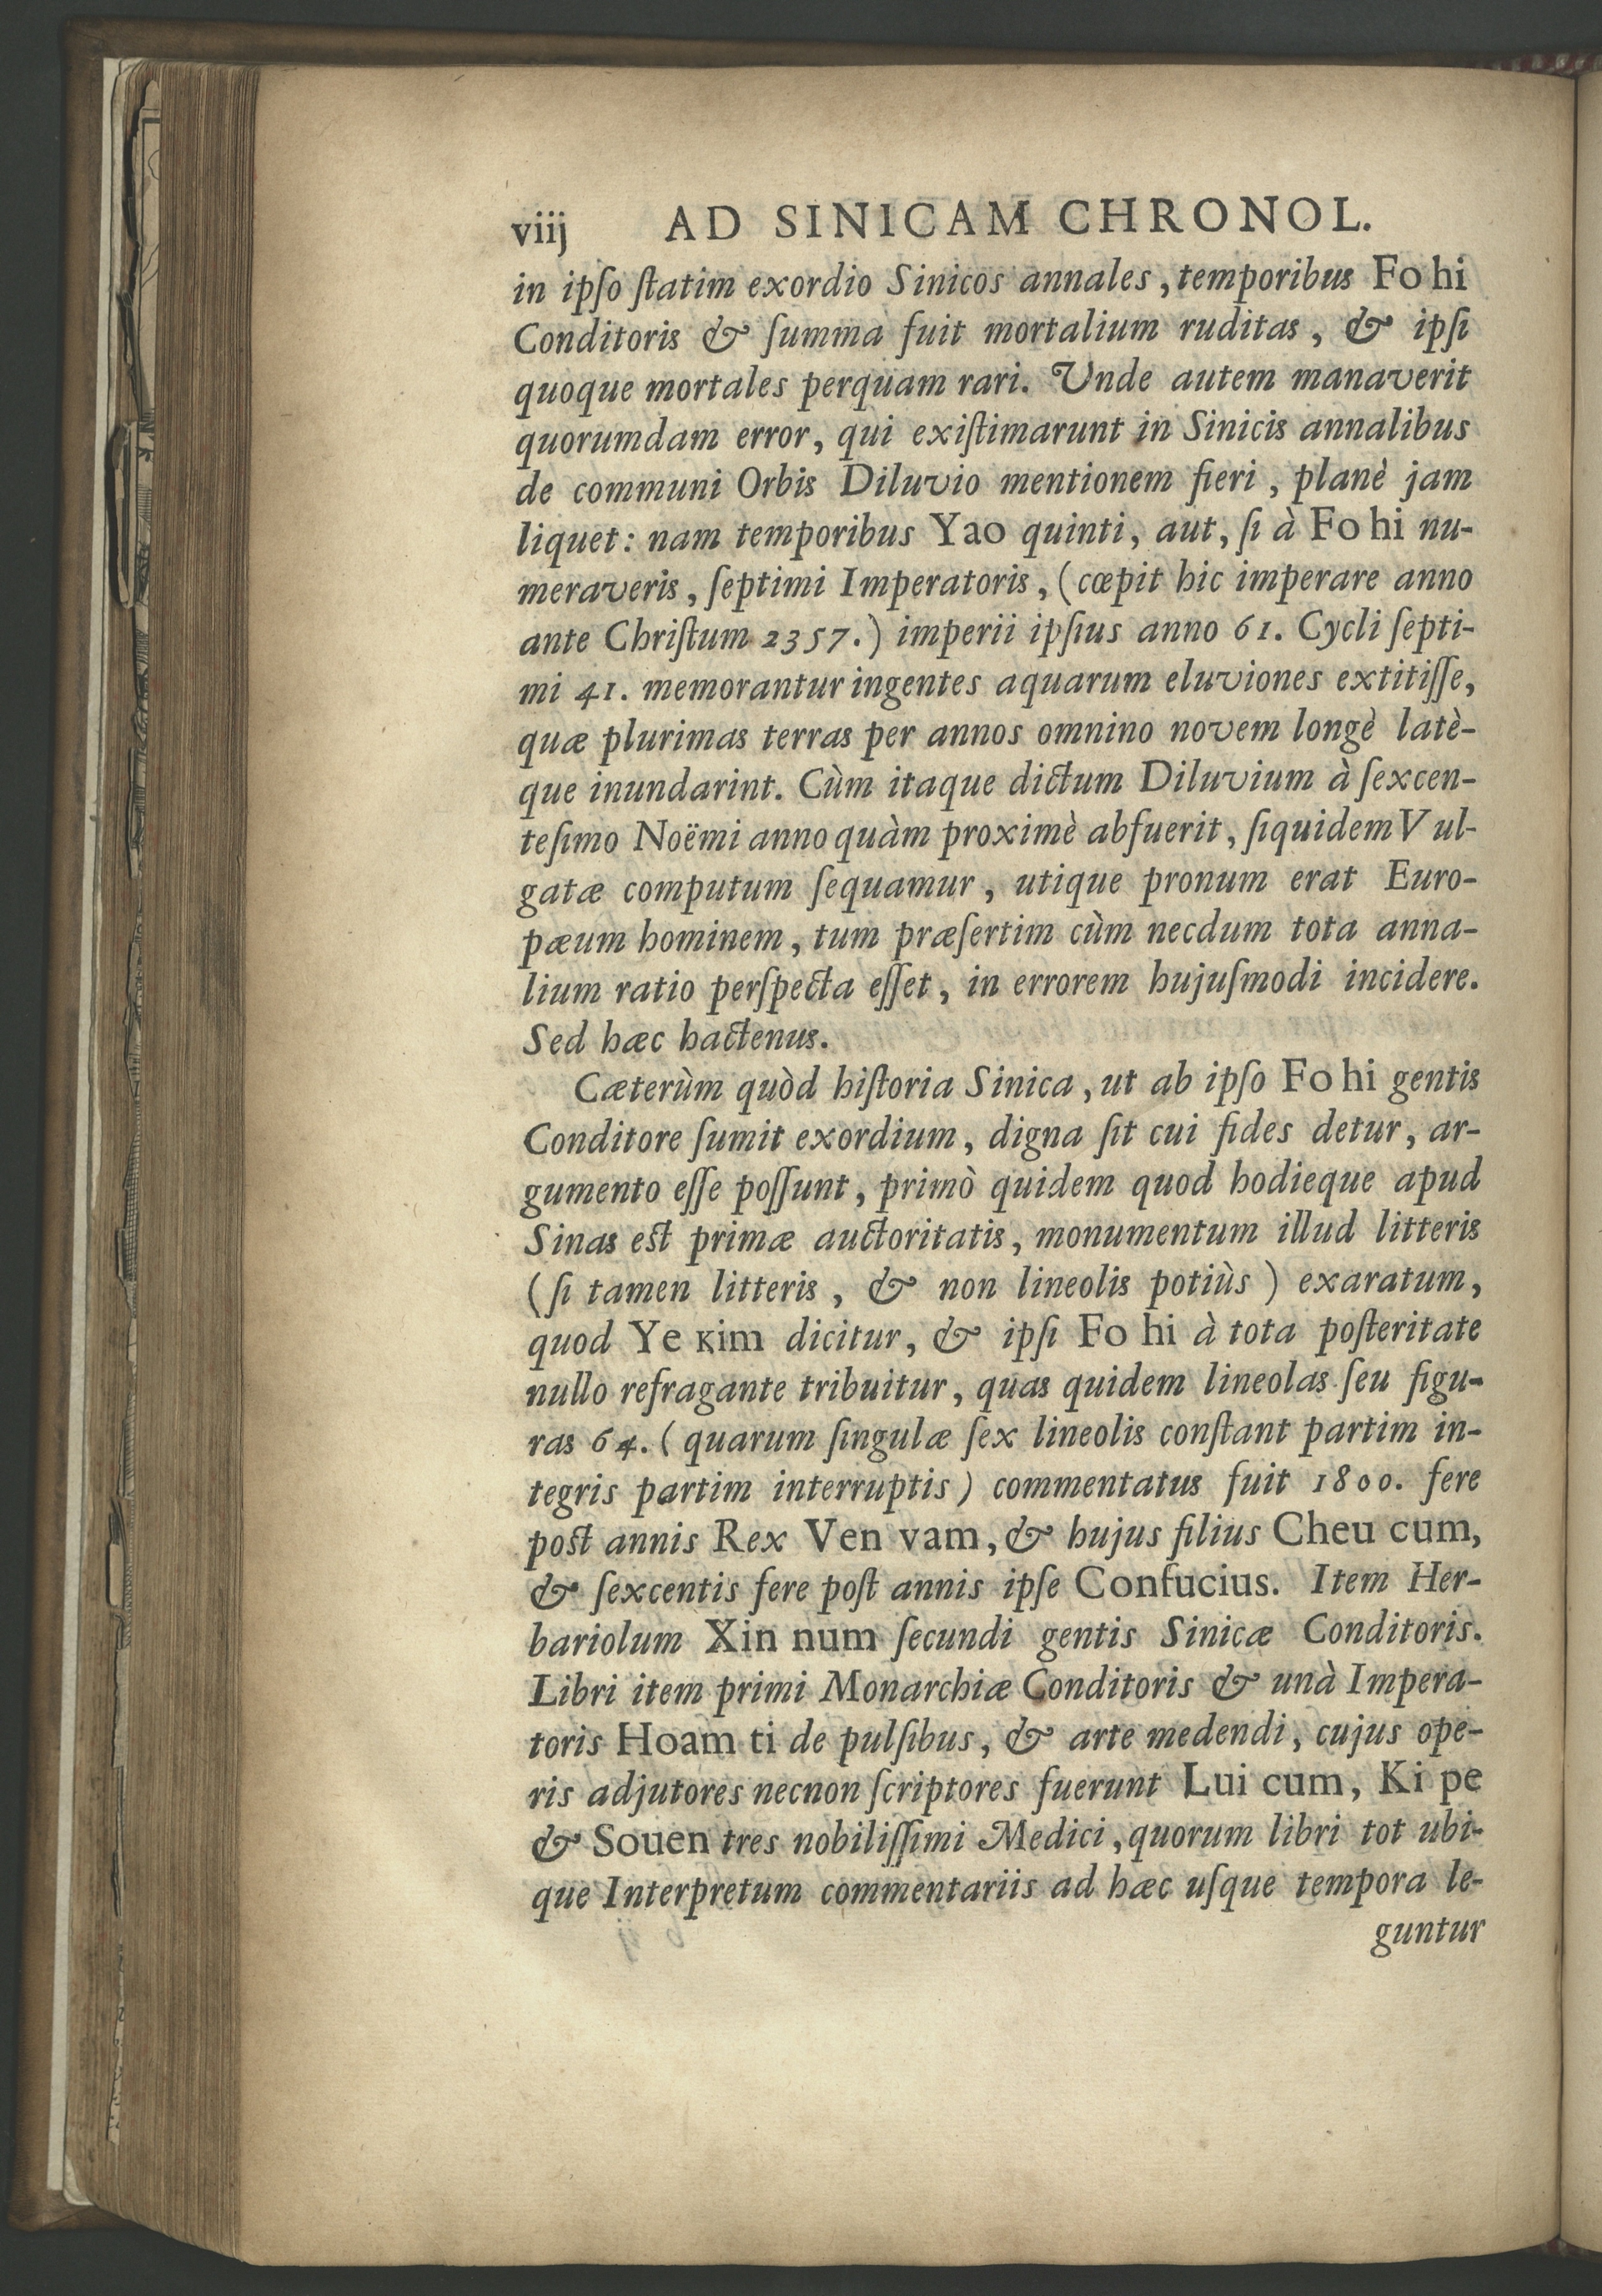 viij AD SINICAM CHRONOL.
in ipſo ſtatim exordio Sinicos annales, temporibus Fo hi
Conditoris & ſumma fuit mortalium ruditas, & ipſi
quoque mortales perquam rari. Unde autem manaverit
quorumdam error, qui exiſtimarunt in Sinicis annalibus
de communi Orbis Diluvio mentionem fieri, planè jam
liquet: nam temporibus Yao quinti, aut, ſi à Fo hi nu-
meraveris, ſeptimi Imperatoris, (cœpit hic imperare anno
ante Chriſtum 2357.) imperii ipſius anno 61. Cycli ſepti-
mi 41. memorantur ingentes aquarum eluviones extitiſſe,
quæ plurimas terras per annos omnino novem longè latè-
que inundarint. Cùm itaque dictum Diluvium à ſexcen-
teſimo Noëmi anno quàm proximè abfuerit, ſiquidem Vul-
gatæ computum ſequamur, utique pronum erat Euro-
pæum hominem, tum præſertim cùm necdum tota anna-
lium ratio perſpecta eſſet, in errorem hujuſmodi incidere.
Sed hæc hactenus.
Cæterùm quòd hiſtoria Sinica, ut ab ipſo Fo hi gentis
Conditore ſumit exordium, digna ſit cui fides detur, ar-
gumento eſſe poſſunt, primò quidem quod hodieque apud
Sinas est primæ auctoritatis, monumentum illud litteris
(ſi tamen litteris, & non lineolis potiùs) exaratum,
quod Ye kim dicitur, & ipſi Fo hi à tota poſteritate
nullo refragante tribuitur, quas quidem lineolas ſeu figu-
ras 64. (quarum ſingulæ ſex lineolis conſtant partim in-
tegris partim interruptis) commentatus fuit 1800. fere
post annis Rex Ven vam, & hujus filius Cheu cum,
& ſexcentis fere poſt annis ipſe Confucius. Item Her-
bariolum Xin num ſecundi gentis Sinicæ Conditoris.
Libri item primi Monarchiæ Conditoris & unà Impera-
toris Hoam ti de pulſibus, & arte medendi, cujus ope-
ris adjutores necnon ſcriptores fuerunt Lui cum, Ki pe
& Souen tres nobiliſſimi Medici, quorum libri tot ubi-
que Interpretum commentariis ad hæc uſque tempora le-
guntur